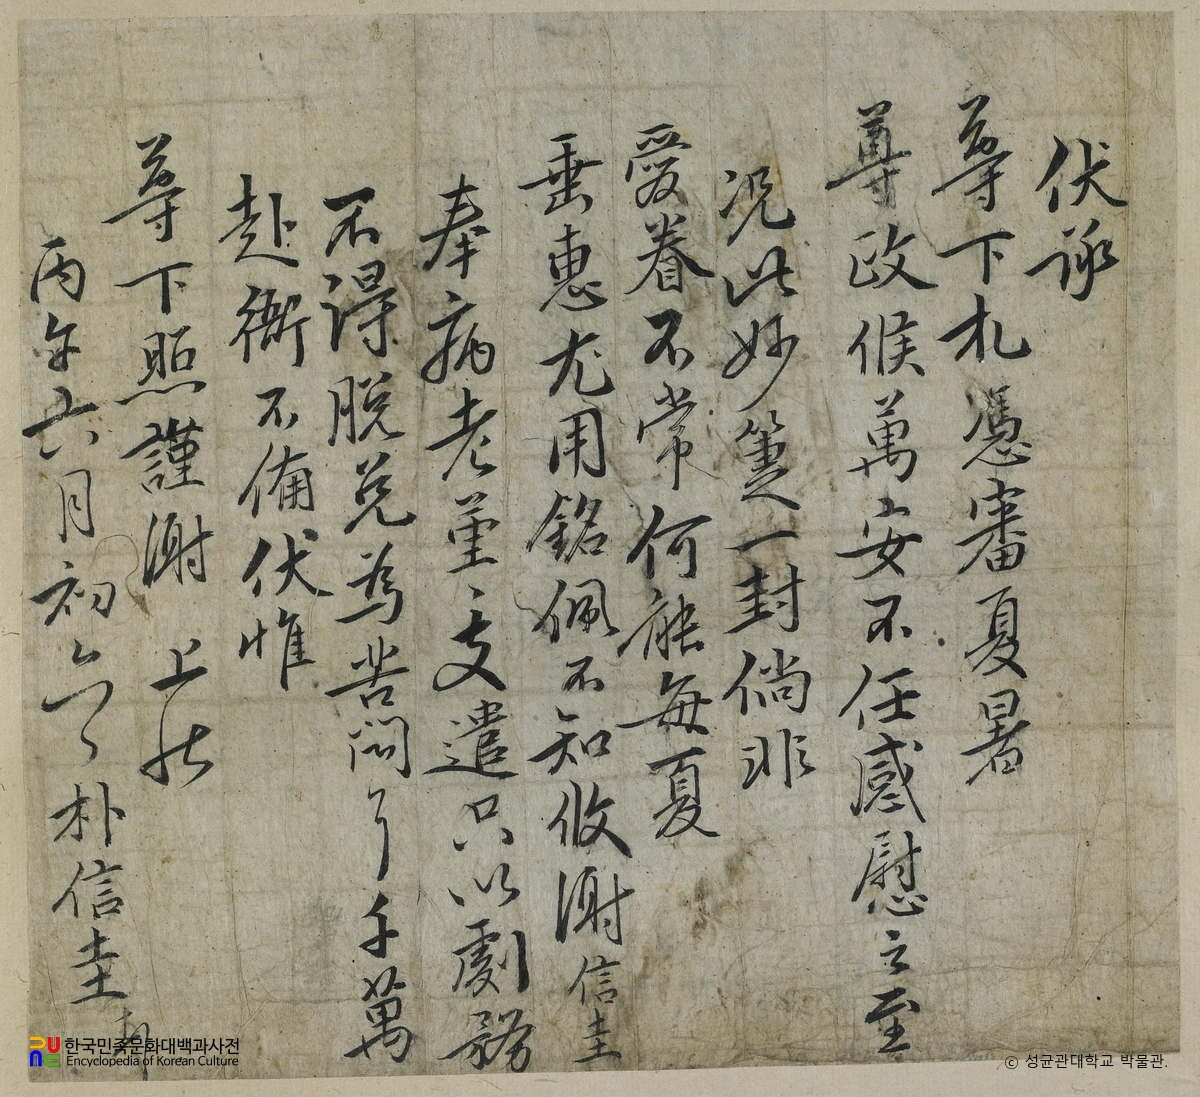 伏承
尊下札憑審夏暑
尊政候萬安不任感慰之至
况此妙箑一封倘非
愛眷不常何能每夏
垂惠尤用銘佩不知攸謝信圭
奉病老菫〻支遣只以劇務
不得脱免爲苦悶了千萬
赴衙不備伏惟
尊下照謹謝上狀
丙午六月初六日朴信圭
한국민족문화대백과사전
Encyclopedia of Korean Culture
© 성균관대학교 박물관.